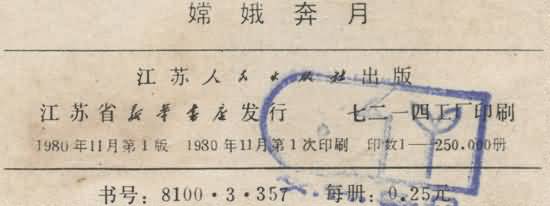 嫦娥奔月
江苏人民出版社出版
江苏省新华书店发行 七二一四工厂印刷
1980年11月第1版 1980年11月第1次印刷 印数1—250.000册
书号：8100·3·357 每册：0.25元